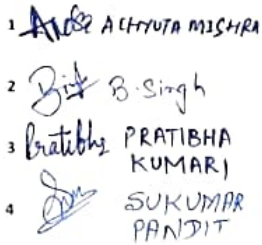 1 ACHYUTA MISHRA
2 B. Singh
3 Pratibha PRATIBHA
KUMARI
4 SUKUMAR
PANDIT